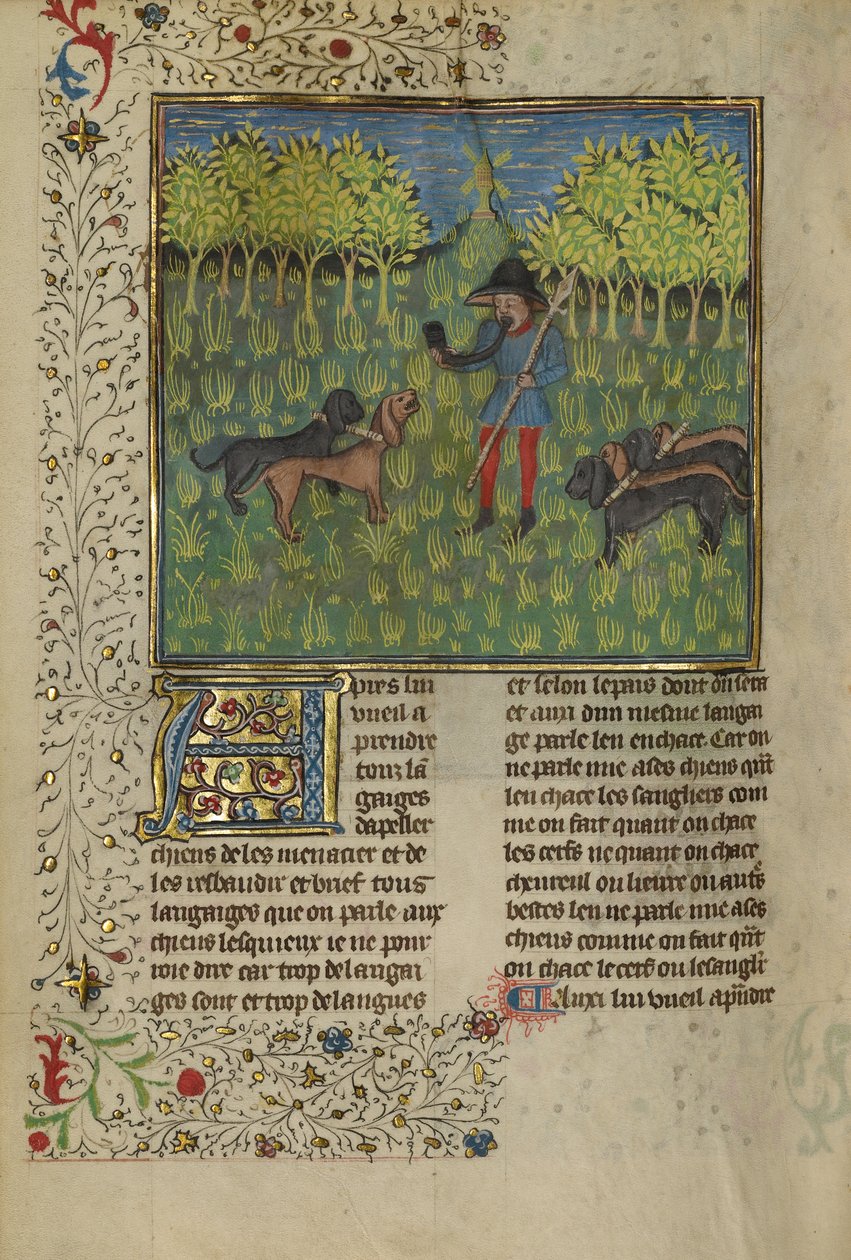 Apres lui
vueil a
prendre
touz lã
gaiges
dapeller
chiens de les menacier et de
les resbaudir et brief tous
langaiges que on parle aux
chiens lesquieux ie ne pour
roie dire car trop de langai
ges sont et trop de langues
et selon le pais dont on sera
et auxi dun mesme langai
ge parle len en chace. Car on
ne parle mie a ses chiens qñt
len chace les sangliers com
me on fait quant on chace
les cerfs ne quant on chace
cheureul ou lieure ou autˢ
bestes len ne parle mie a ses
chiens comme on fait qñt
on chace le cerf ou le sanglr̃
auxi lui vueil apñdre